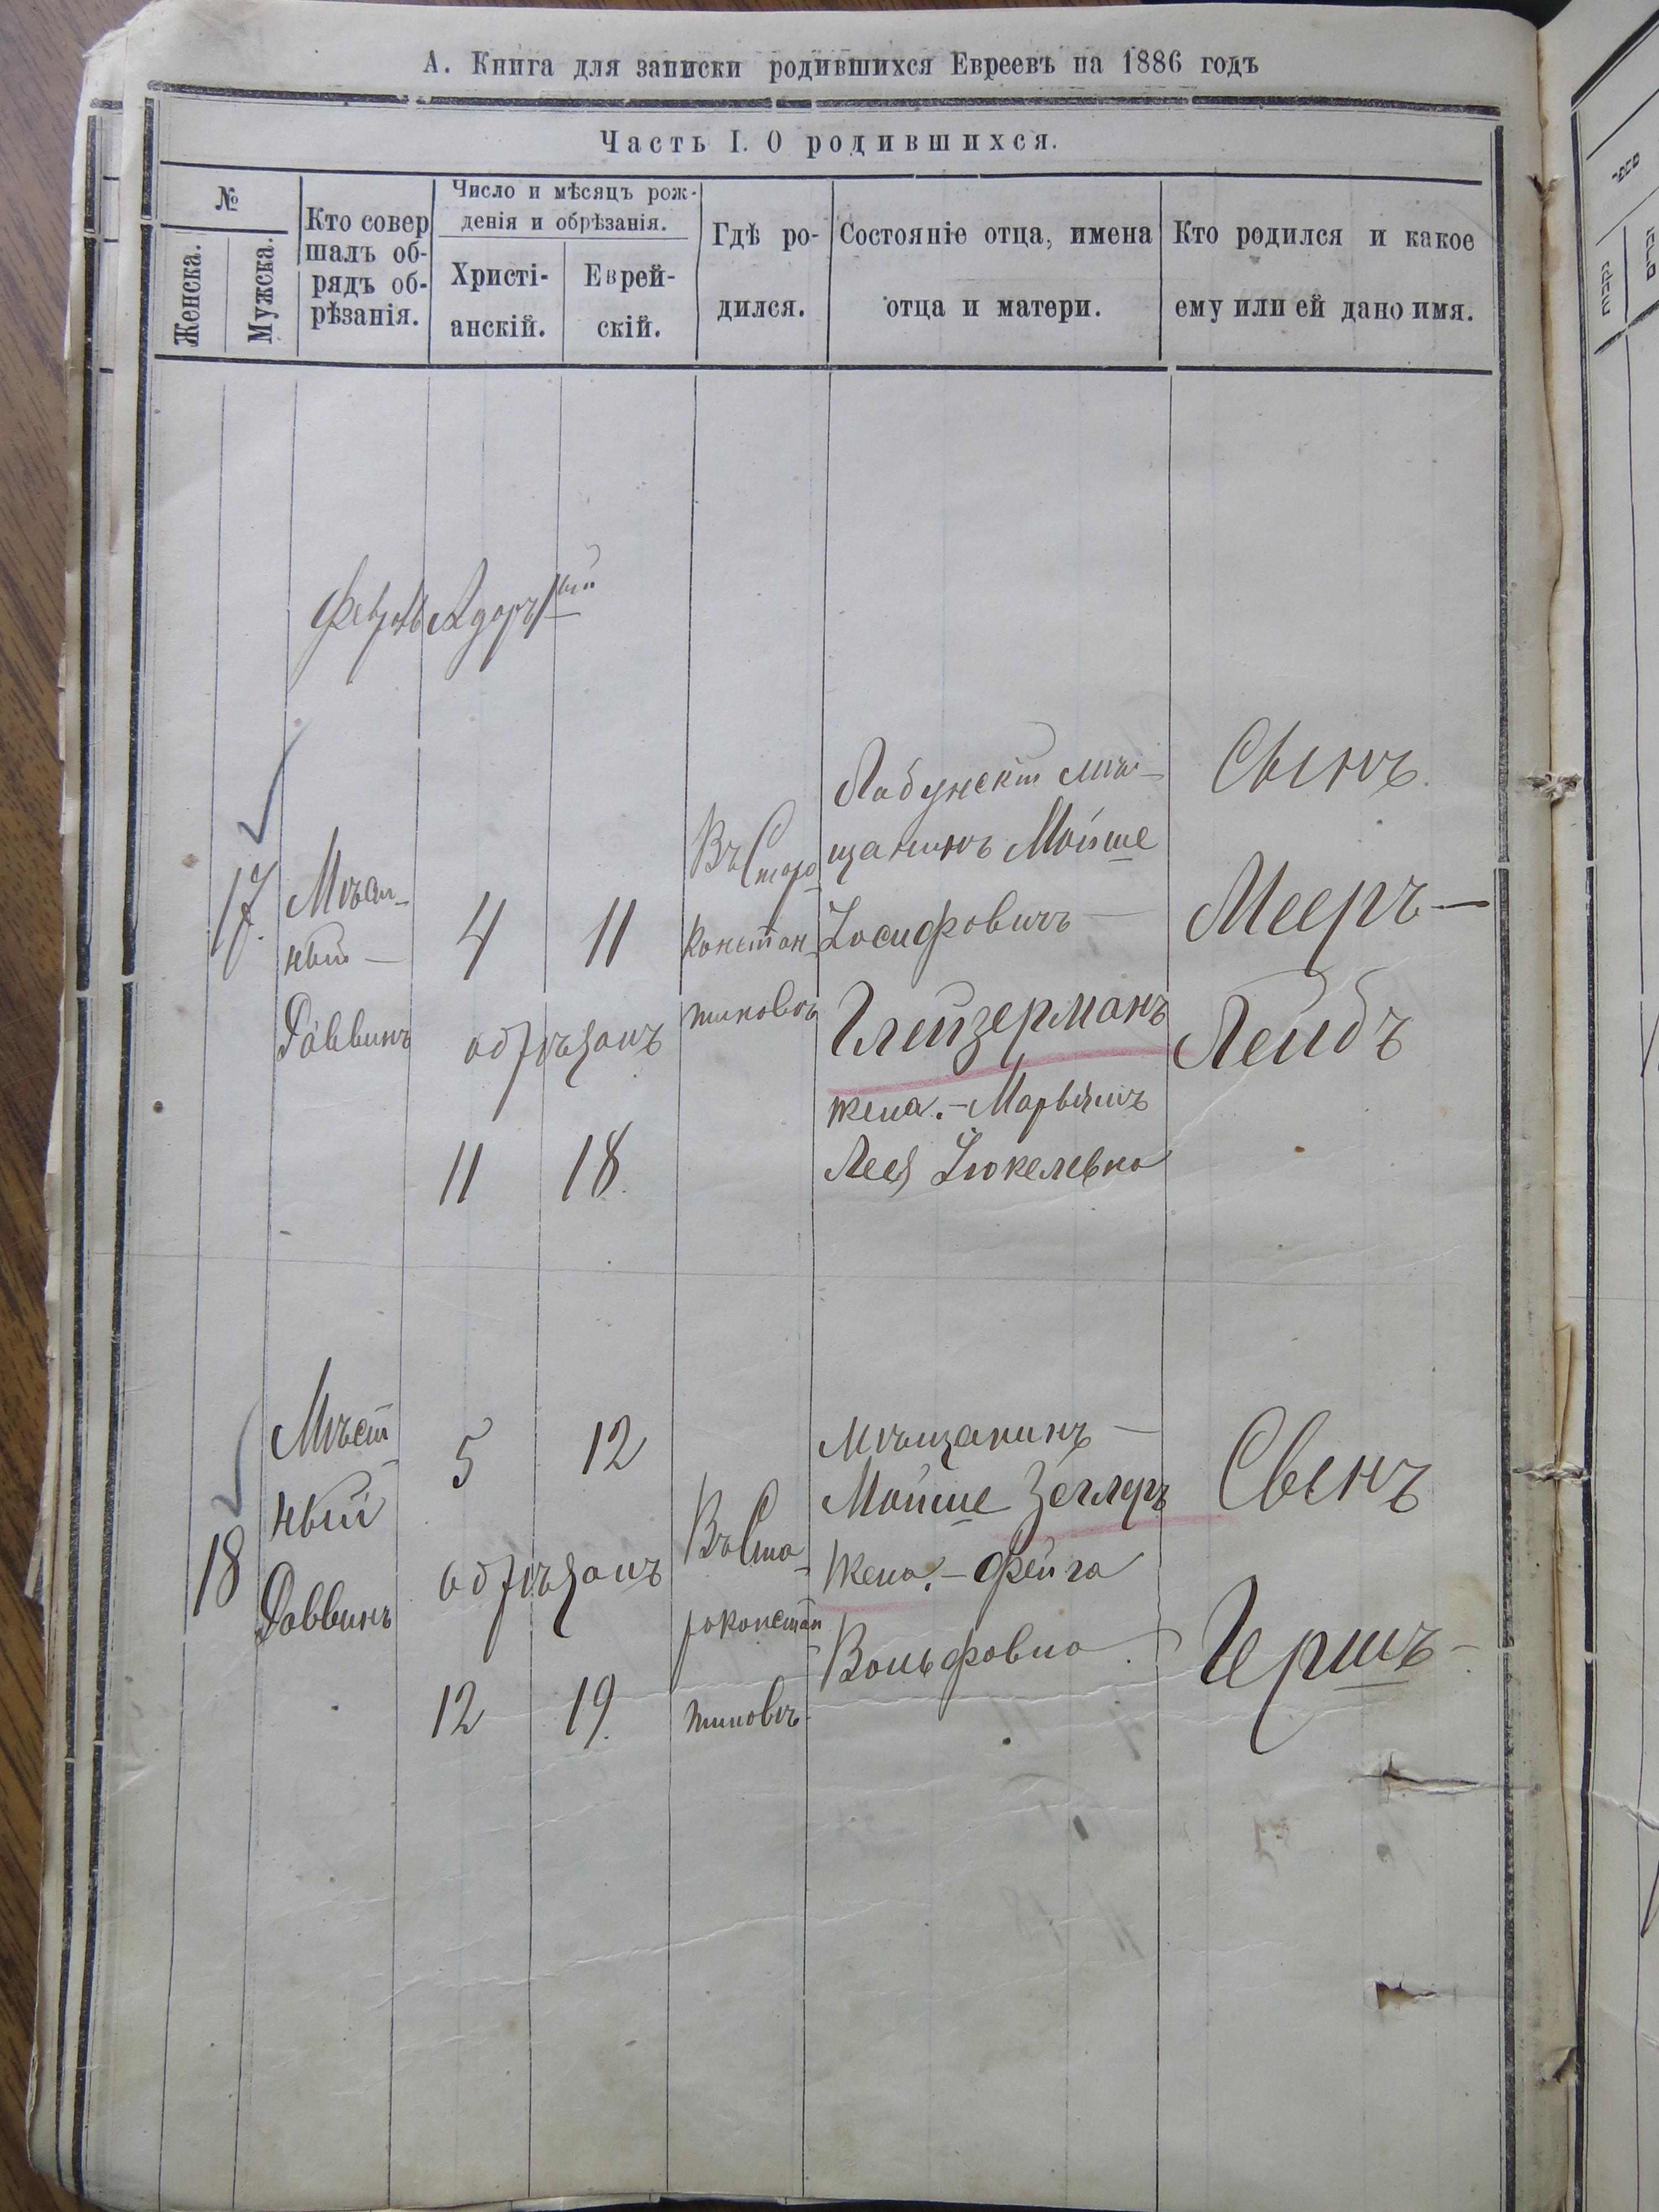 А. Книга для записки родившихся Евреевъ на 1886 годъ
Часть I. О родившихся.
№
Женска.
Мужска.
Кто совер
шалъ об-
рядъ об-
рѣзанія.
Число и мѣсяцъ рож-
денія и обрѣзанія.
Христі-
анскій.
Еврей-
скій.
Гдѣ ро-
дился.
Состояніе отца, имена
отца и матери.
Кто родился и какое
ему или ей дано имя.
Адаръ 1ый
17.
Мѣст-
ный —
Раввинъ
4
11
обрѣзанъ
11
18.
Въ Старо
констан-
тиновѣ
Лабунскій мѣ-
щанинъ Мойше
Іосифовичъ —
Глейзерманъ
жена. – Марьямъ
Лея Іюкелевна
Сынъ.
Мееръ —
Лейбъ
18
Мѣст-
ный
Раввинъ
5
12
обрѣзанъ
12
19.
Въ Ста-
роконстан-
тиновѣ.
Мѣщанинъ —
Мойше
Жена. – Фейга
Вольфовна.
Сынъ
Гершъ –